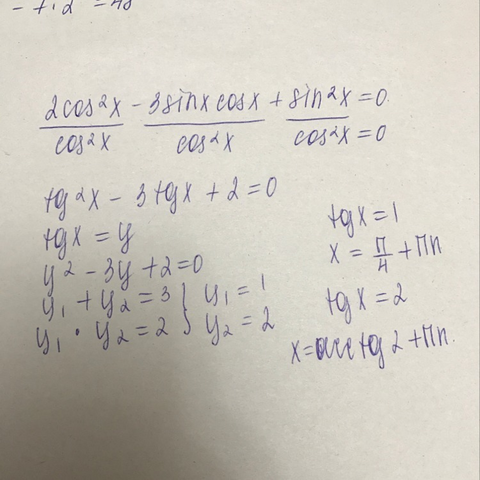 - 7·2 = 48
2cos²x - 3sinx cosx + sin²x = 0
cos²x cos²x cos²x = 0
tg²x - 3tgx + 2 = 0
tgx = y
y² - 3y + 2 = 0
y₁ + y₂ = 3 } y₁ = 1
y₁ · y₂ = 2 } y₂ = 2
tgx = 1
x = π/4 + πn
tgx = 2
x = arctg 2 + πn.